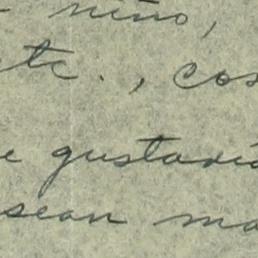 niño,
etc., cos
e gustaría
sean ma